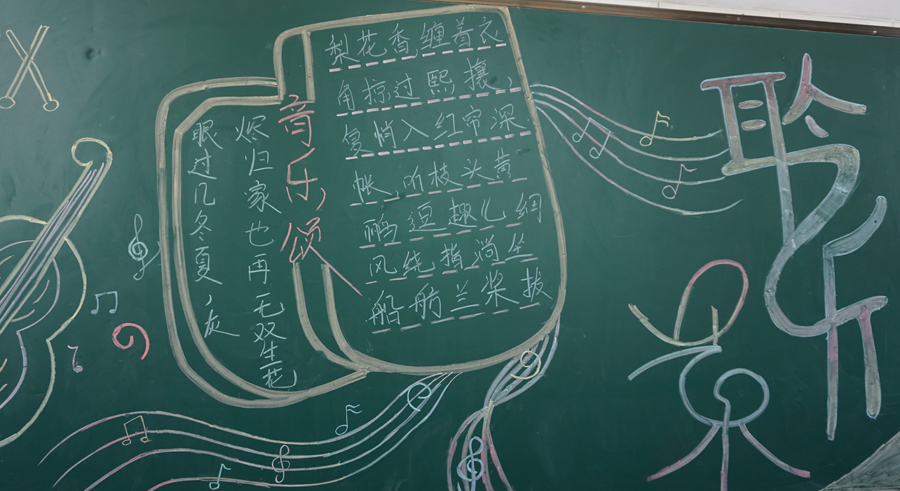 聆听
音乐颂
梨花香缠着衣
角掠过熙攘,
复悄入红帘深
帐,听枝头黄
鹂逗趣儿细
风绕指淌坐
船舫兰桨拨
眼过几冬夏,灰
烬归家也再无双生花